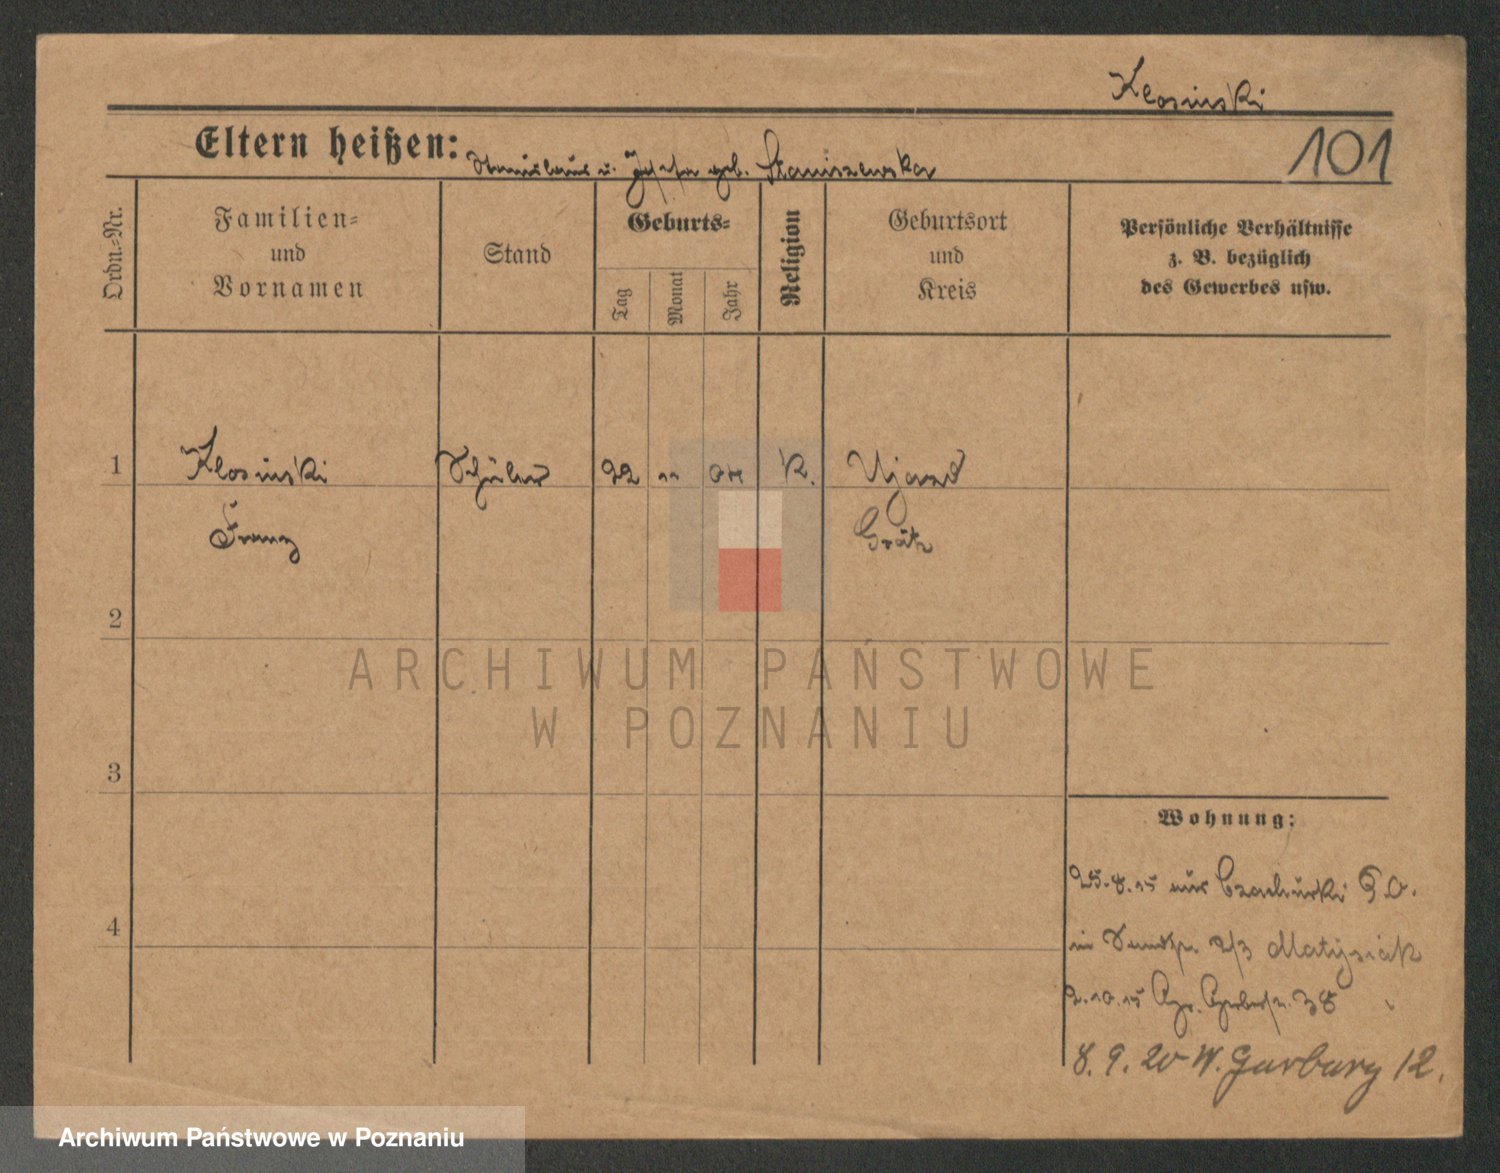 Klosinski
Eltern heißen: Stanislaus u. Josefa geb. Staniszewska
101
Ordn.=Nr.
Familien=
und
Vornamen
Stand
Geburts=
Tag
Monat
Jahr
Religion
Geburtsort
und
Kreis
Persönliche Verhältnisse
z. B. bezüglich
des Gewerbes usw.
1 Klosinski Schüler 22 11 04 K. Ujazd
Franz Grätz
2
ARCHIWUM PAŃSTWOWE
W POZNANIU
3
Wohnung:
25.8.15 aus
4
2/3 Matysiak
2.10.15 Gr. Gerberstr. 38
8. 9. 20 W. Garbary 12.
Archiwum Państwowe w Poznaniu